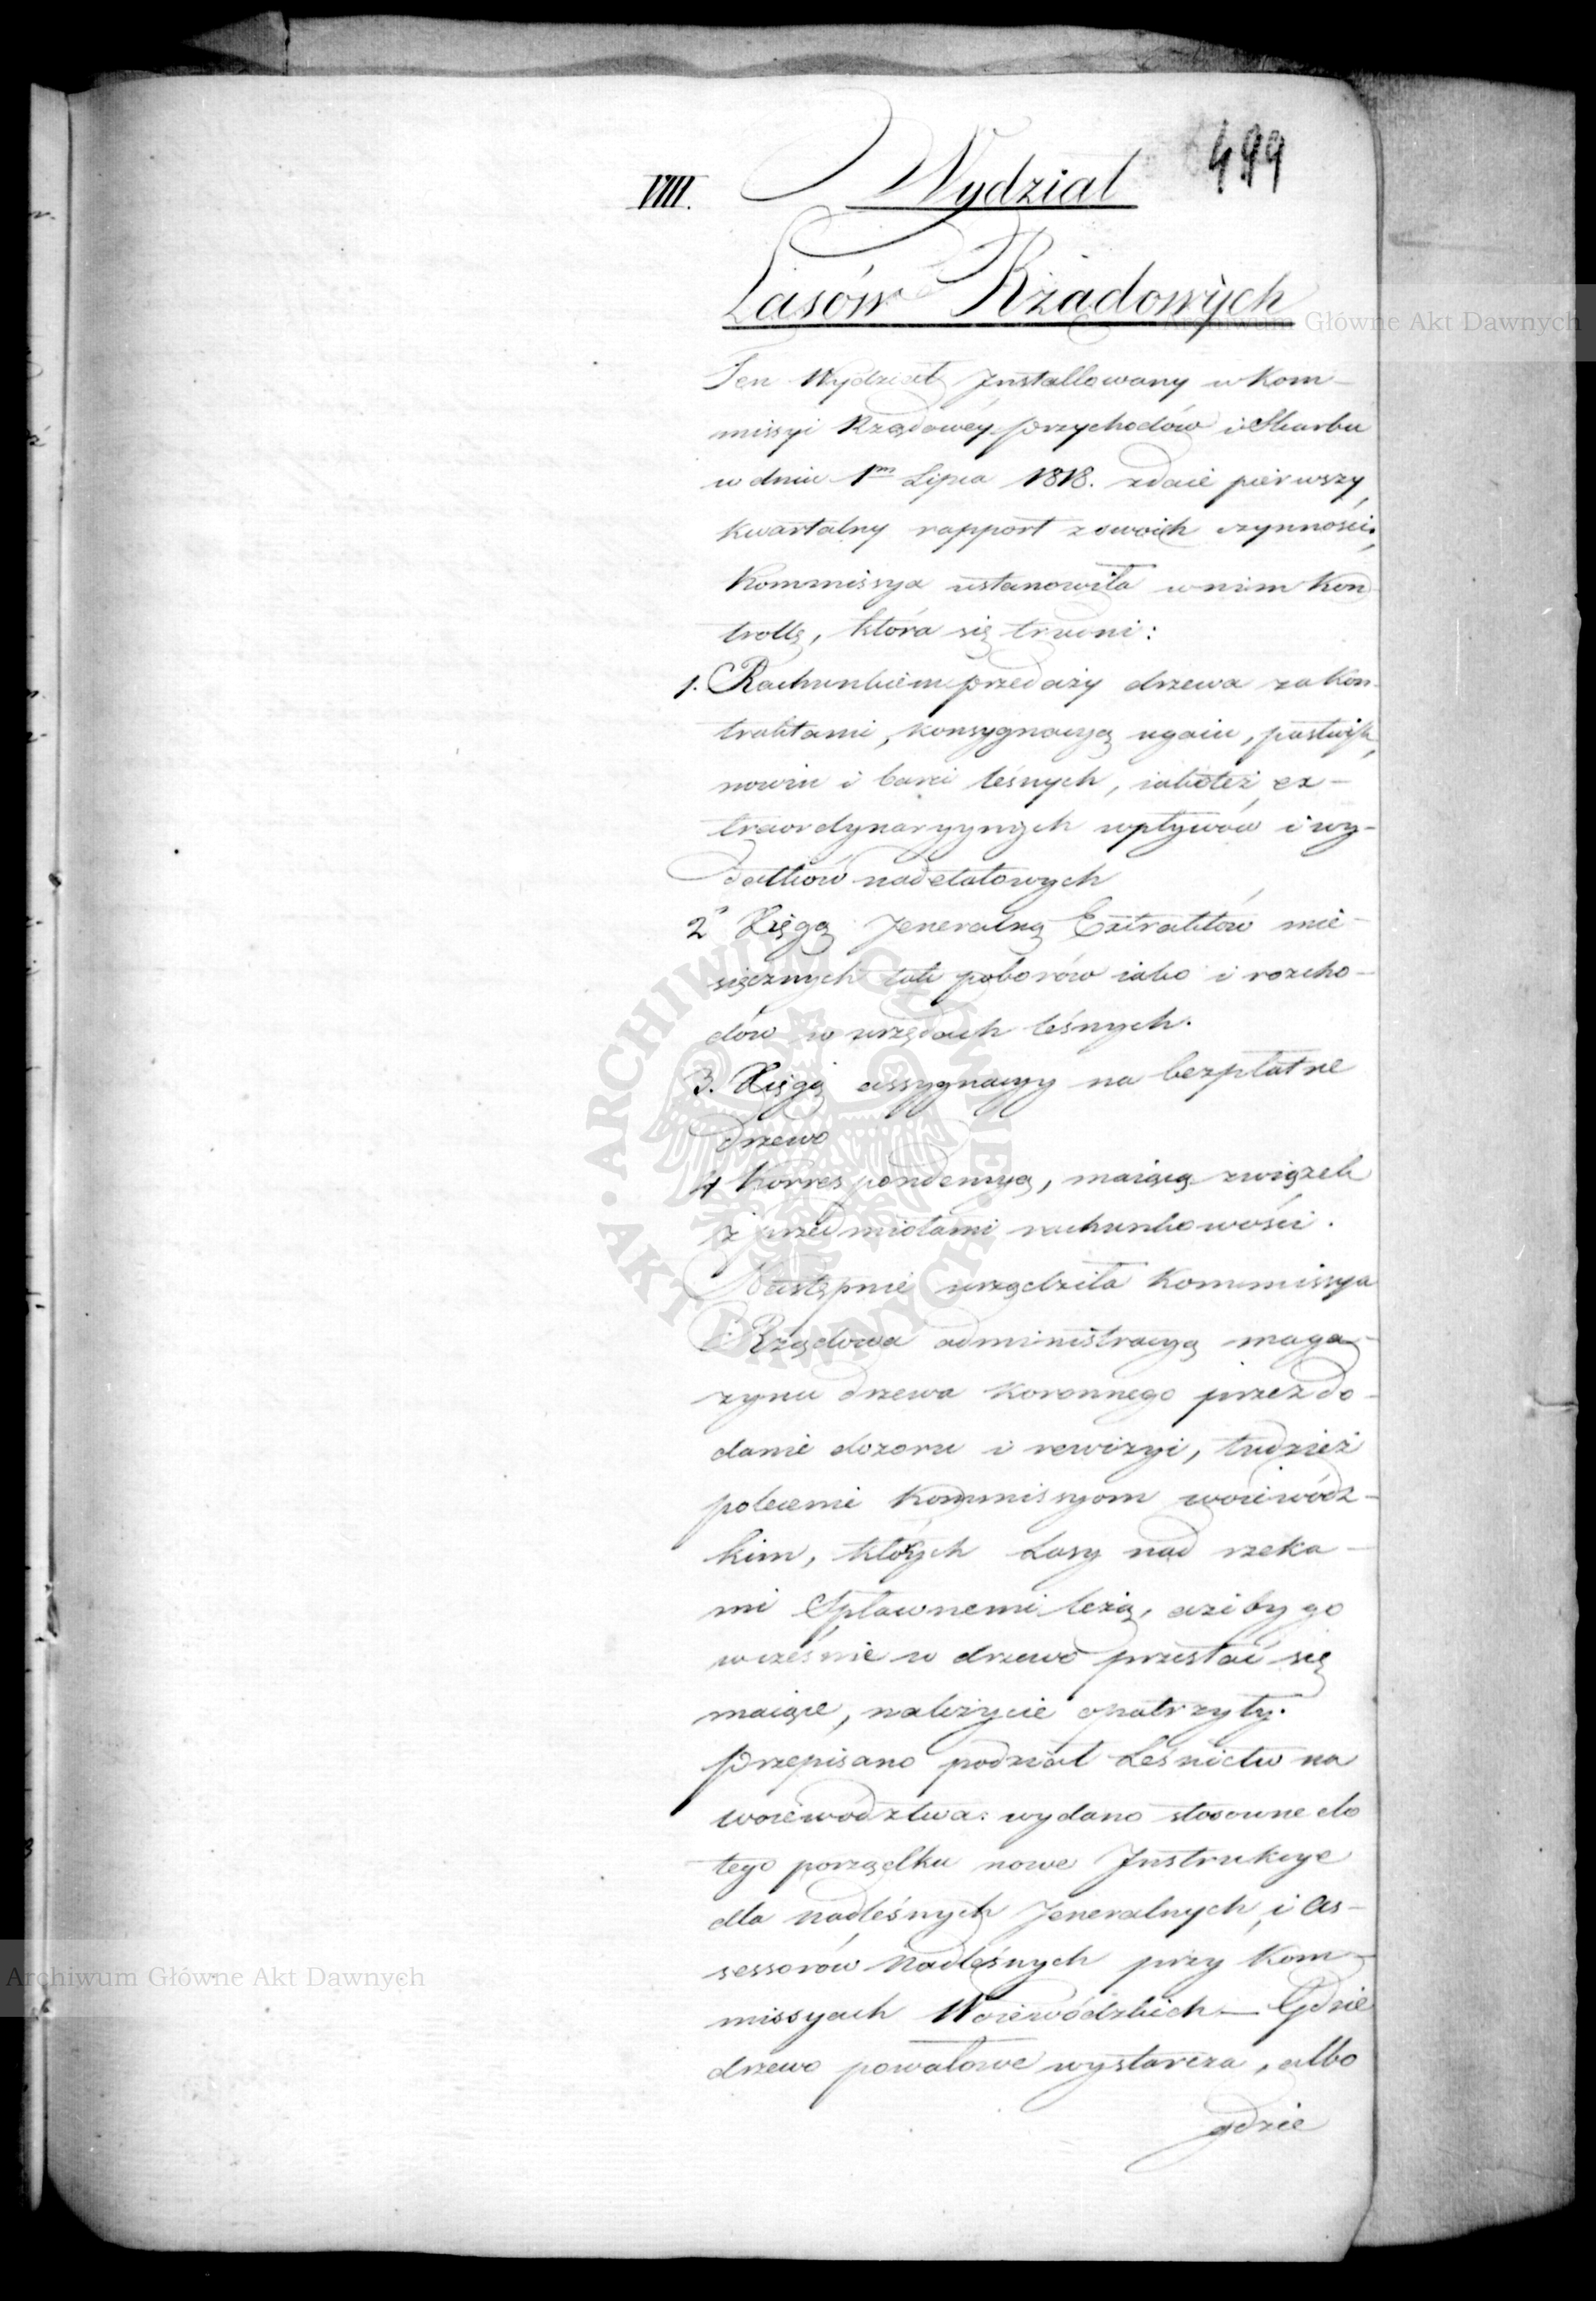 499
VIII. Wydział
Lasów Rządowych
Ten Wydział Installowany w Kom-
missyi Rządowéy przychodów i Skarbu
w dniu 1m Lipca 1818. zdaie pierwszy
kwartalny rapport z swoich czynności,
Kommissya ustanowiła w nim Kon
trollę, która się trudni:
1. Rachunkiem przedaży drzewa za kon-
traktami, konsygnacyą ugaiu, pastwisk,
nowin i barci leśnych, iakoteż ex-
traordynaryynych wpływów i wy-
datków nadetatowych
2o Xięgą Jeneralną Extraktów mie-
sięcznych tak poborów iako i rozcho-
dów w urzędach leśnych.
3. Xięgą assygnacyy na bezpłatne
drzewo
4 Korrespondencyą, maiącą związek
z przedmiotami rachunkowości.
Następnie urządziła Kommissya
Rządowa administracyą maga-
zynu drzewa koronnego przez do-
danie dozoru i rewizyi, tudzież
polecenie Kommissyom woiewódz-
kim, których Lasy nad rzeka-
mi Spławnemi leżą, ażeby go
wcześnie w drzewo przestać się
maiące, należycie opatrzyły.
Przepisano podział Leśnictw na
woiewództwa: wydano stosowne do
tego porządku nowe Instrukcye
dla nadleśnych Jeneralnych i As-
sessorów Nadleśnych przy Kom-
missyach Woiewódzkich — Gdzie
drzewo powałowe wystarcza, albo
gdzie
Archiwum Główne Akt Dawnych
Archiwum Główne Akt Dawnych
ARCHIWUM GŁÓWNE AKT DAWNYCH